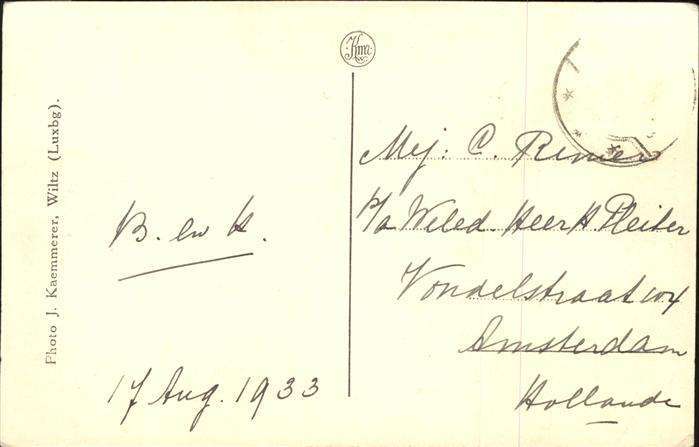 Photo J. Kaemmerer, Wiltz (Luxbg).
B. en H.
17 Aug. 1933
Mej. C.
p/a Weled Heer H Pleiter
Vondelstraat 104
Amsterdam
Hollande